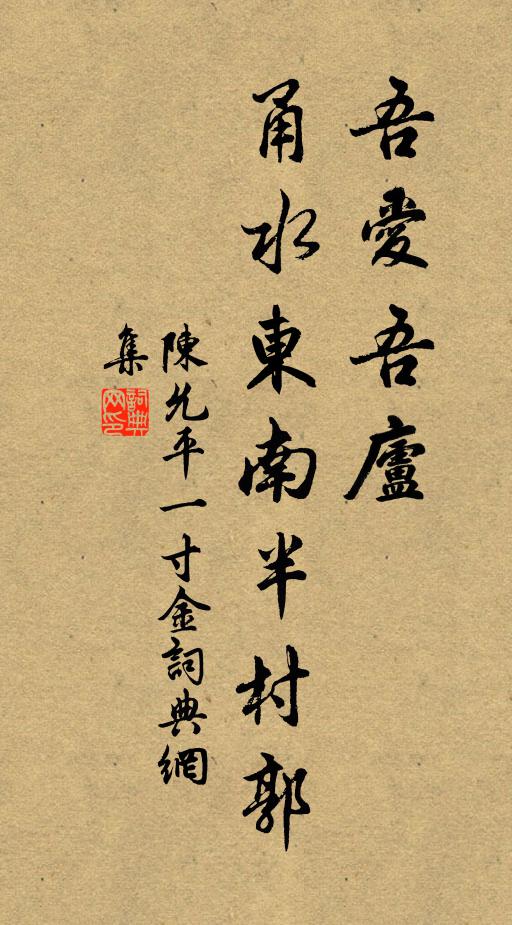 吾愛吾廬
甬水東南半村郭
陳允平一寸金詞典網
集
詞典
網印